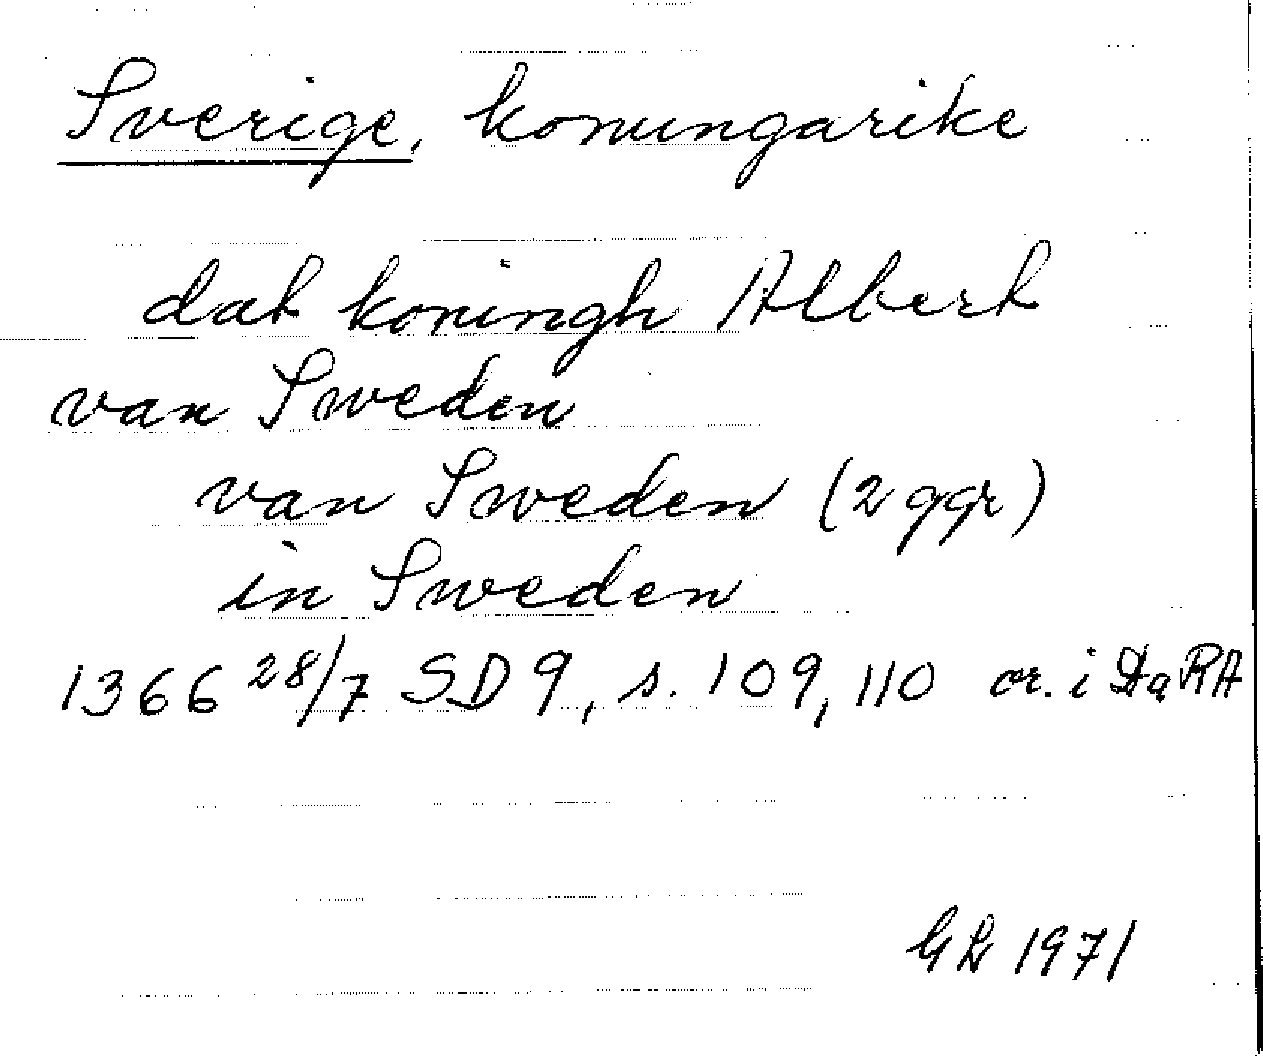 Sverige, konungarike
dat koningh Albert
van Sweden
van Sweden (2 ggr)
in Sweden
1366 28/7 SD 9, s. 109, 110 or. i DaRA
GL 1971